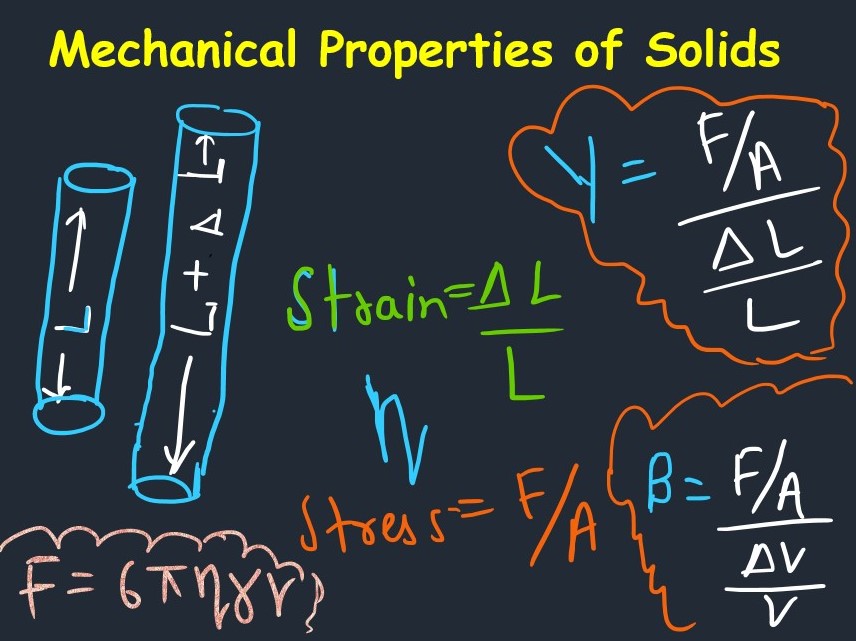 Mechanical Properties of Solids
L
L + Δ L
Y = F/A / ΔL / L
Strain = ΔL / L
η
Stress = F/A
B = F/A / ΔV / V
F = 6πηrv